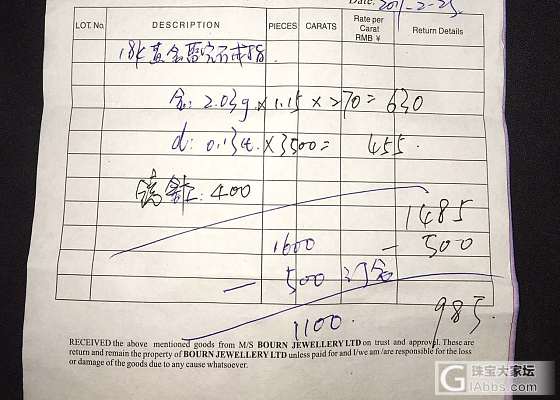 Date: 2011-2-25
LOT.No. DESCRIPTION PIECES CARATS Rate per Carat RMB ¥ Return Details
18K黄金 戒指
金: 2.03g × 1.15 × 270 = 630
d: 0.13ct. × 3500 = 455.
工: 400
1485
1600 - 500
- 500 订金
1100. 985
RECEIVED the above mentioned goods from M/S BOURN JEWELLERY LTD on trust and approval. These are
return and remain the property of BOURN JEWELLERY LTD unless paid for and I/we am /are responsible for the loss
or damage of the goods due to any cause whatsoever.
珠宝大家坛
iAbbs.com